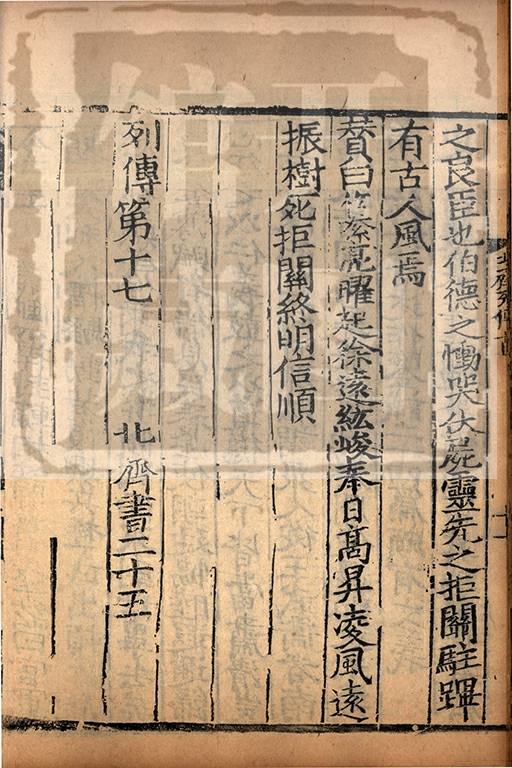 之良臣也伯德之慟哭伏屍靈先之拒關駐蹕
有古人風焉
賛曰纂亮曜起徐遠紘峻奉日高昇凌風遠
振樹死拒關終明信順
列傳第十七 北齊書二十五